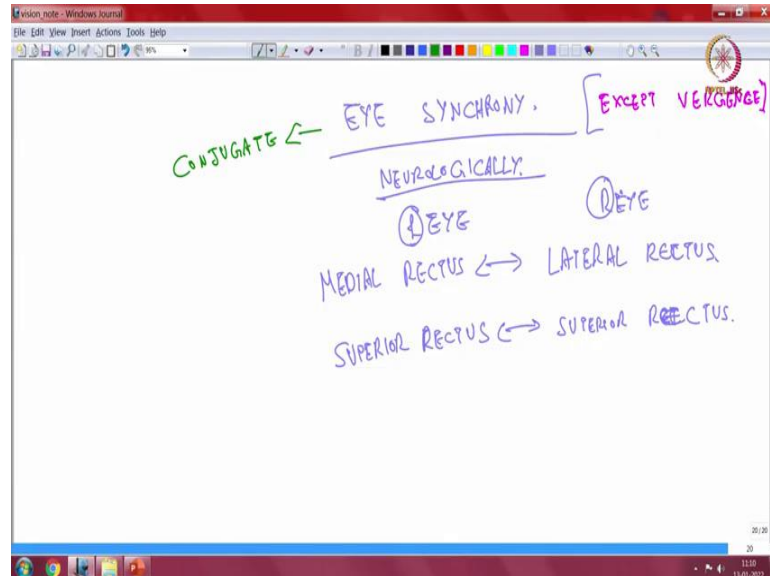 vision_note - Windows Journal
File Edit View Insert Actions Tools Help
96%
EYE SYNCHRONY. [EXCEPT VERGENCE]
CONJUGATE <-
NEUROLOGICALLY.
(L) EYE (R) EYE
MEDIAL RECTUS <-> LATERAL RECTUS.
SUPERIOR RECTUS <-> SUPERIOR RECTUS.
20/20
20
11:10
13-01-2022